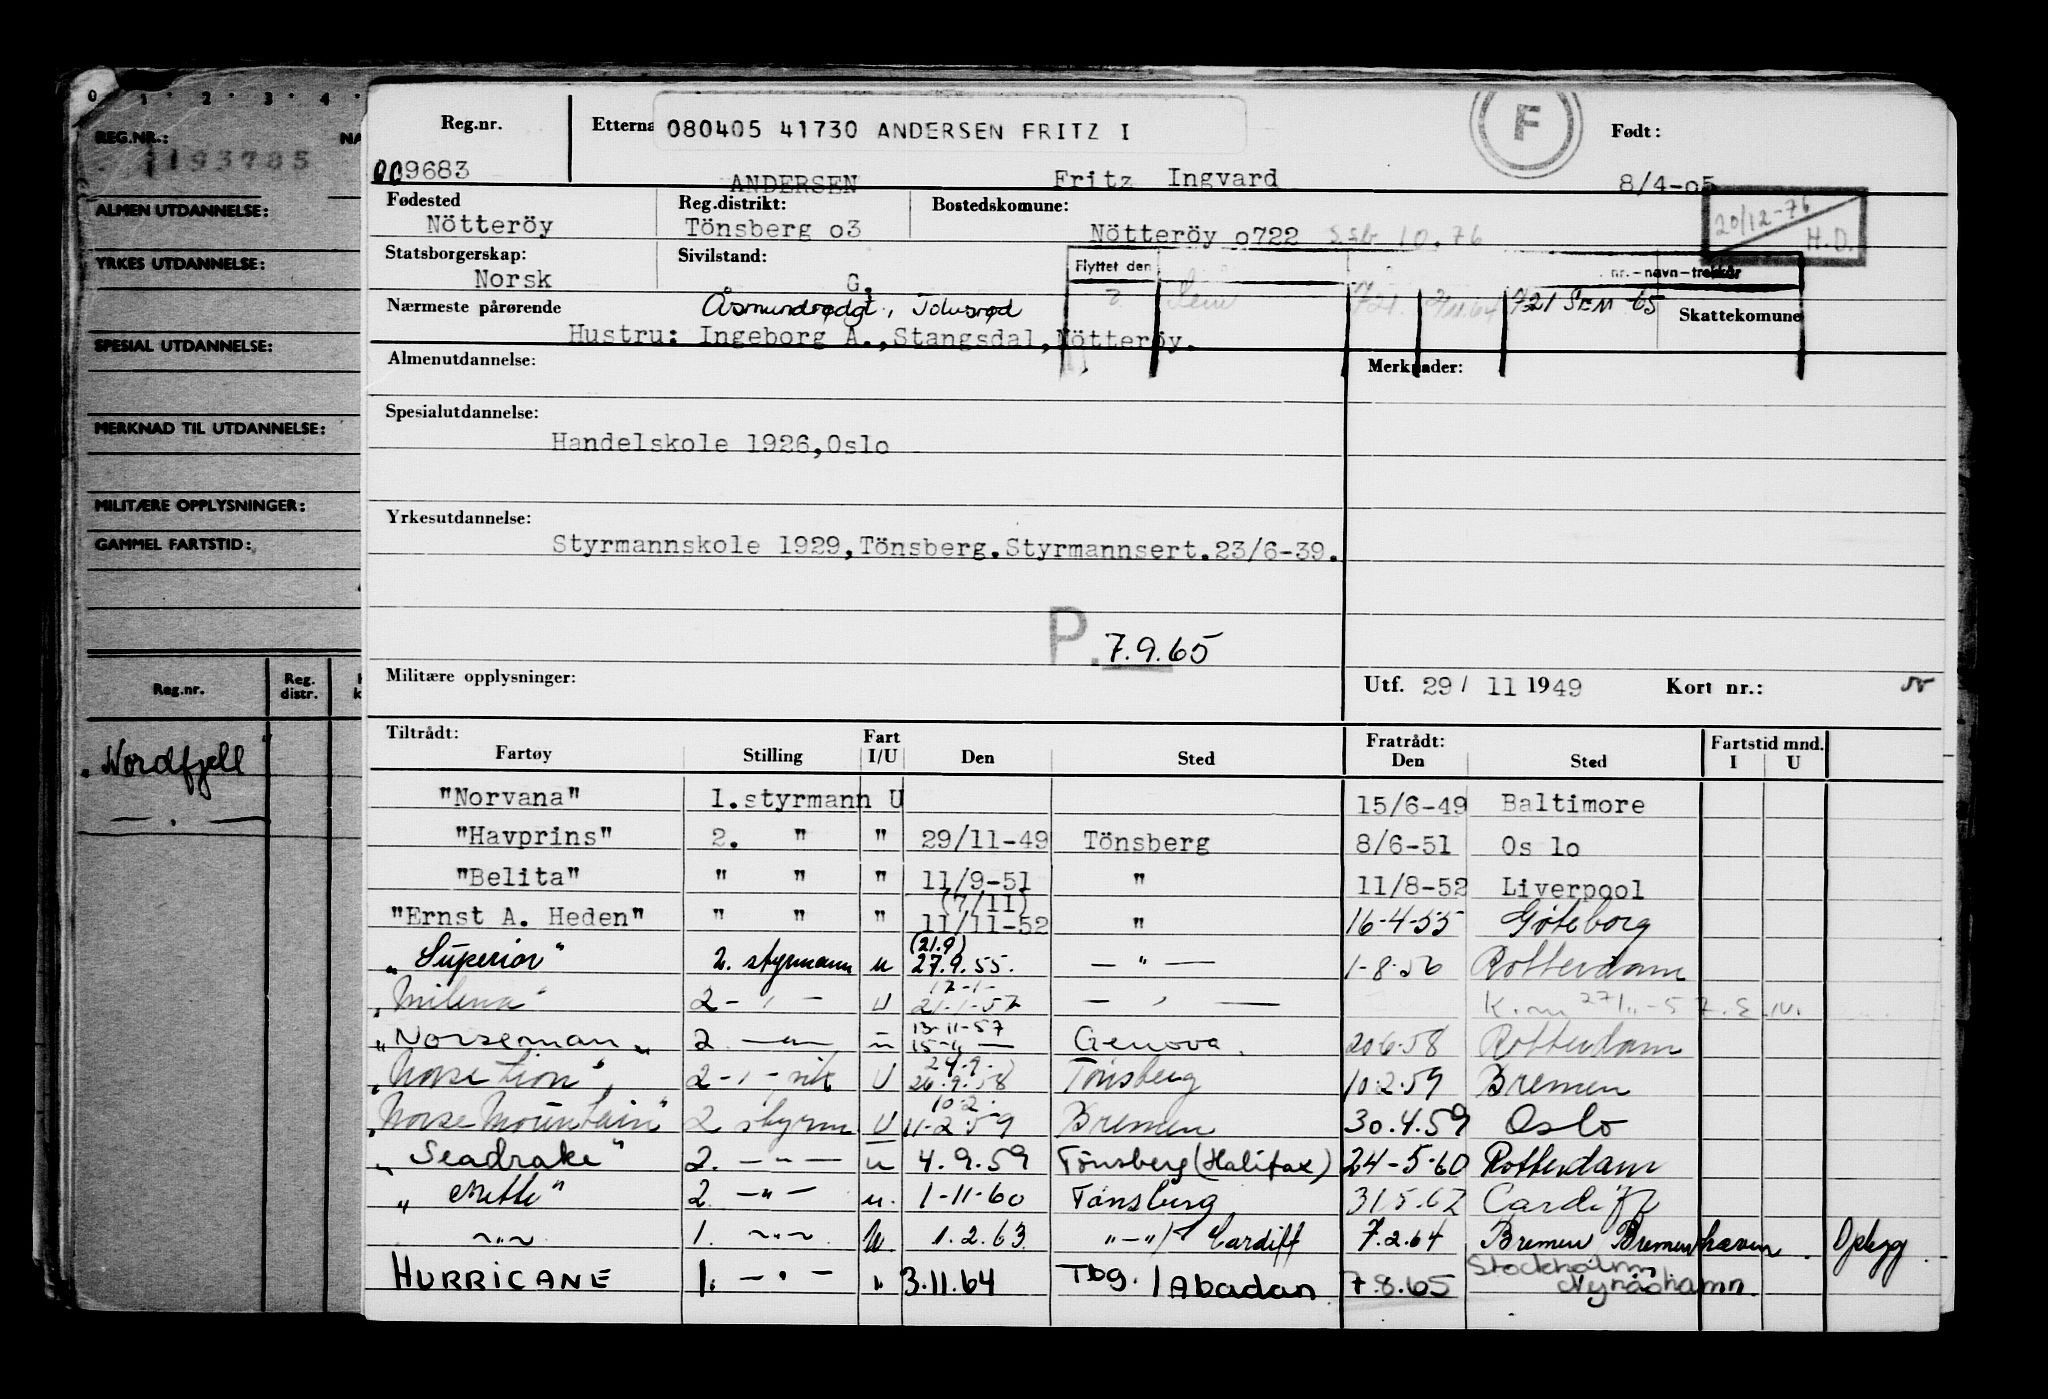 0 1 2 3 4
REG.NR.: NA
1193785
ALMEN UTDANNELSE:
YRKES UTDANNELSE:
SPESIAL UTDANNELSE:
MERKNAD TIL UTDANNELSE:
MILITÆRE OPPLYSNINGER:
GAMMEL FARTSTID:
Reg.nr. Reg. distr.
"Nordfjell
— " —
Reg.nr. Etterna 080405 41730 ANDERSEN FRITZ I F Født:
009683 ANDERSEN Fritz Ingvard 8/4-05
Fødested Reg.distrikt: Bostedskomune: 20/12-76
Nötteröy Tönsberg o3 Nötteröy o722 Ssb 10.76 H.D.
Statsborgerskap: Sivilstand: Flyttet den nr.-navn-trekkår
Norsk G.
Nærmeste pårørende Åsmundrødgt., Tolvsrød Sem 721 721 SEM 65 Skattekomune
Hustru: Ingeborg A.,Stangsdal,Nötteröy.
Almenutdannelse: Merknader:
Spesialutdannelse:
Handelskole 1926,Oslo
Yrkesutdannelse:
Styrmannskole 1929,Tönsberg.Styrmannsert.23/6-39.
P. 7.9.65
Militære opplysninger: Utf. 29/ 11 1949 Kort nr.:
Tiltrådt: Fart Fratrådt: Fartstid mnd.
Fartøy Stilling I/U Den Sted Den Sted I U
"Norvana" 1.styrmann U 15/6-49 Baltimore
"Havprins" 2. " " 29/11-49 Tönsberg 8/6-51 Os lo
"Belita" " " " 11/9-51 " 11/8-52 Liverpool
(7/11)
"Ernst A. Heden" " " " 11/11-52 " 16-4-55 Gøteborg
(21.9)
"Superior" 2. styrmann u 27.9.55. — " — 1-8-56 Rotterdam
17-1-
"Milena" 2 - " - U 21-1-57 — " — K.m 27/11-57.
13-11-57
"Norseman" 2 — " — " 15-"- Genova. 20.6.58 Rotterdam
24.9.
"Norse Lion" 2 - " - U 26.9.58 Tönsberg 10.2.59 Bremen
10.2.
"Norse Mountain" 2 styrm U 11-2.59 Bremen 30.4.59 Oslo
"Seadrake" 2. - " - u 4.9.59 Tönsberg (Halifax) 24-5-60 Rotterdam
"Mette" 2 - " - u. 1-11-60 Tönsberg 31.5.62 Cardiff
~ " ~ 1. ~ " ~ U 1.2.63 "-"/ Cardiff 7.2.64 Bremen Bremerhaven. Opbygg
HURRICANE 1. - " - " 3.11.64 Tbg. / Abadan 7.8.65 Stockholm Nynäshamn.